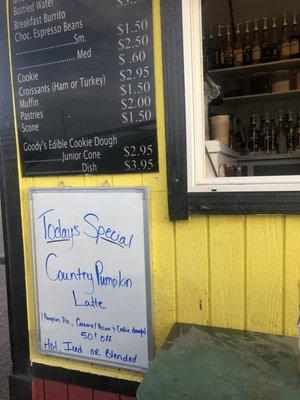 Bottled Water
Breakfast Burrito
Choc. Espresso Beans $1.50
Sm. $2.50
Med $ .60
Cookie $2.95
Croissants (Ham or Turkey) $1.50
Muffin $2.00
Pastries $1.50
Scone
Goody's Edible Cookie Dough
Junior Cone $2.95
Dish $3.95
Today's Special
Country Pumpkin
Latte
50¢ OFF
Hot, Iced OR Blended